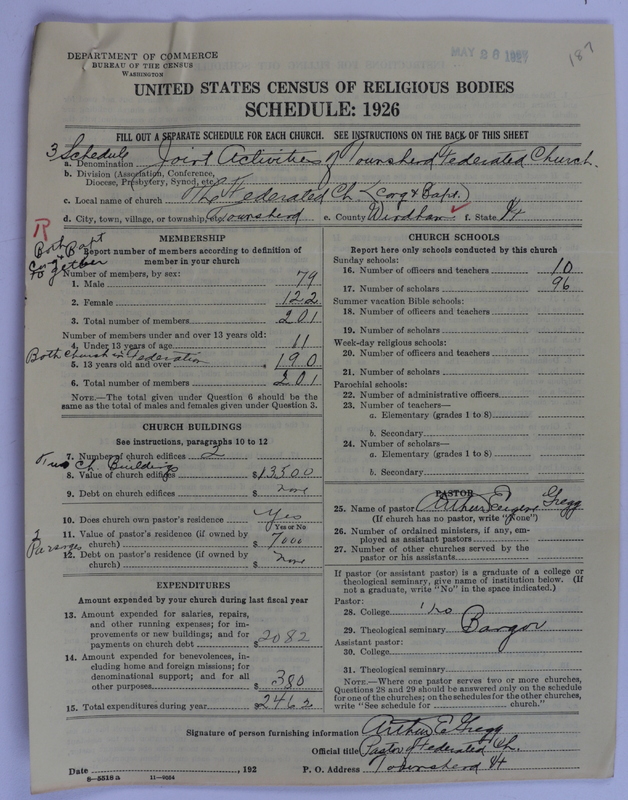 187
MAY 26 1927
DEPARTMENT OF COMMERCE
BUREAU OF THE CENSUS
WASHINGTON
UNITED STATES CENSUS OF RELIGIOUS BODIES
SCHEDULE: 1926
FILL OUT A SEPARATE SCHEDULE FOR EACH CHURCH. SEE INSTRUCTIONS ON THE BACK OF THIS SHEET
3 Schedule
a. Denomination Joint Activities of Townshend Federated Church.
b. Division (Association, Conference, Diocese, Presbytery, Synod, etc.)
c. Local name of church The Federated Ch. (Cong & Bapt.)
d. City, town, village, or township, etc. Townshend e. County Windham f. State Vt
R
Both Bapt
Cong &
To gether
MEMBERSHIP
Report number of members according to definition of
member in your church
Number of members, by sex:
1. Male 79
2. Female 122
3. Total number of members 201
Number of members under and over 13 years old:
4. Under 13 years of age 11
Both Church in Federation
5. 13 years old and over 190
6. Total number of members 201
NOTE.—The total given under Question 6 should be
same as the total of males and females given under Question 3.
CHURCH BUILDINGS
See instructions, paragraphs 10 to 12
7. Number of church edifices 2
Two Ch. Buildings
8. Value of church edifices $13500
9. Debt on church edifices $ none
10. Does church own pastor's residence Yes
Yes or No
2 Parsonages
11. Value of pastor's residence (if owned by
church) $ 7000
12. Debt on pastor's residence (if owned by
church) $ none
EXPENDITURES
Amount expended by your church during last fiscal year
13. Amount expended for salaries, repairs,
and other running expenses; for im-
provements or new buildings; and for
payments on church debt $2082
14. Amount expended for benevolences, in-
cluding home and foreign missions; for
denominational support; and for all
other purposes $ 380
15. Total expenditures during year $2462
CHURCH SCHOOLS
Report here only schools conducted by this church
Sunday schools:
16. Number of officers and teachers 10
17. Number of scholars 96
Summer vacation Bible schools:
18. Number of officers and teachers
19. Number of scholars
Week-day religious schools:
20. Number of officers and teachers
21. Number of scholars
Parochial schools:
22. Number of administrative officers
23. Number of teachers—
a. Elementary (grades 1 to 8)
b. Secondary
24. Number of scholars—
a. Elementary (grades 1 to 8)
b. Secondary
PASTOR
25. Name of pastor Arthur Eugene Gregg
(If church has no pastor, write "None")
26. Number of ordained ministers, if any, em-
ployed as assistant pastors
27. Number of other churches served by the
pastor or his assistants
If pastor (or assistant pastor) is a graduate of a college or
theological seminary, give name of institution below. (If
not a graduate, write "No" in the space indicated.)
Pastor:
28. College No
29. Theological seminary Bangor
Assistant pastor:
30. College
31. Theological seminary
NOTE.—Where one pastor serves two or more churches,
Questions 28 and 29 should be answered only on the schedule
for one of the churches; on the schedules for the other churches,
write "See schedule for ________ church."
Signature of person furnishing information Arthur E Gregg
Official title Pastor of Federated Ch.
Date ________, 192 P. O. Address Townshend Vt
8—5516a 11—9034